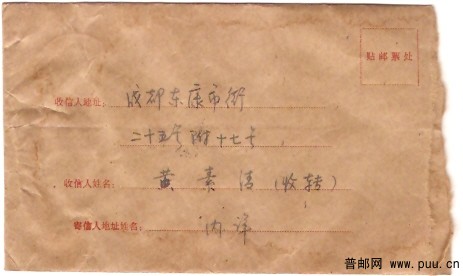 贴邮票处
收信人地址：成都东康市街
二十五号附十七号
收信人姓名：黄素清（收转）
寄信人地址姓名：内详
普邮网 www.puu.cn